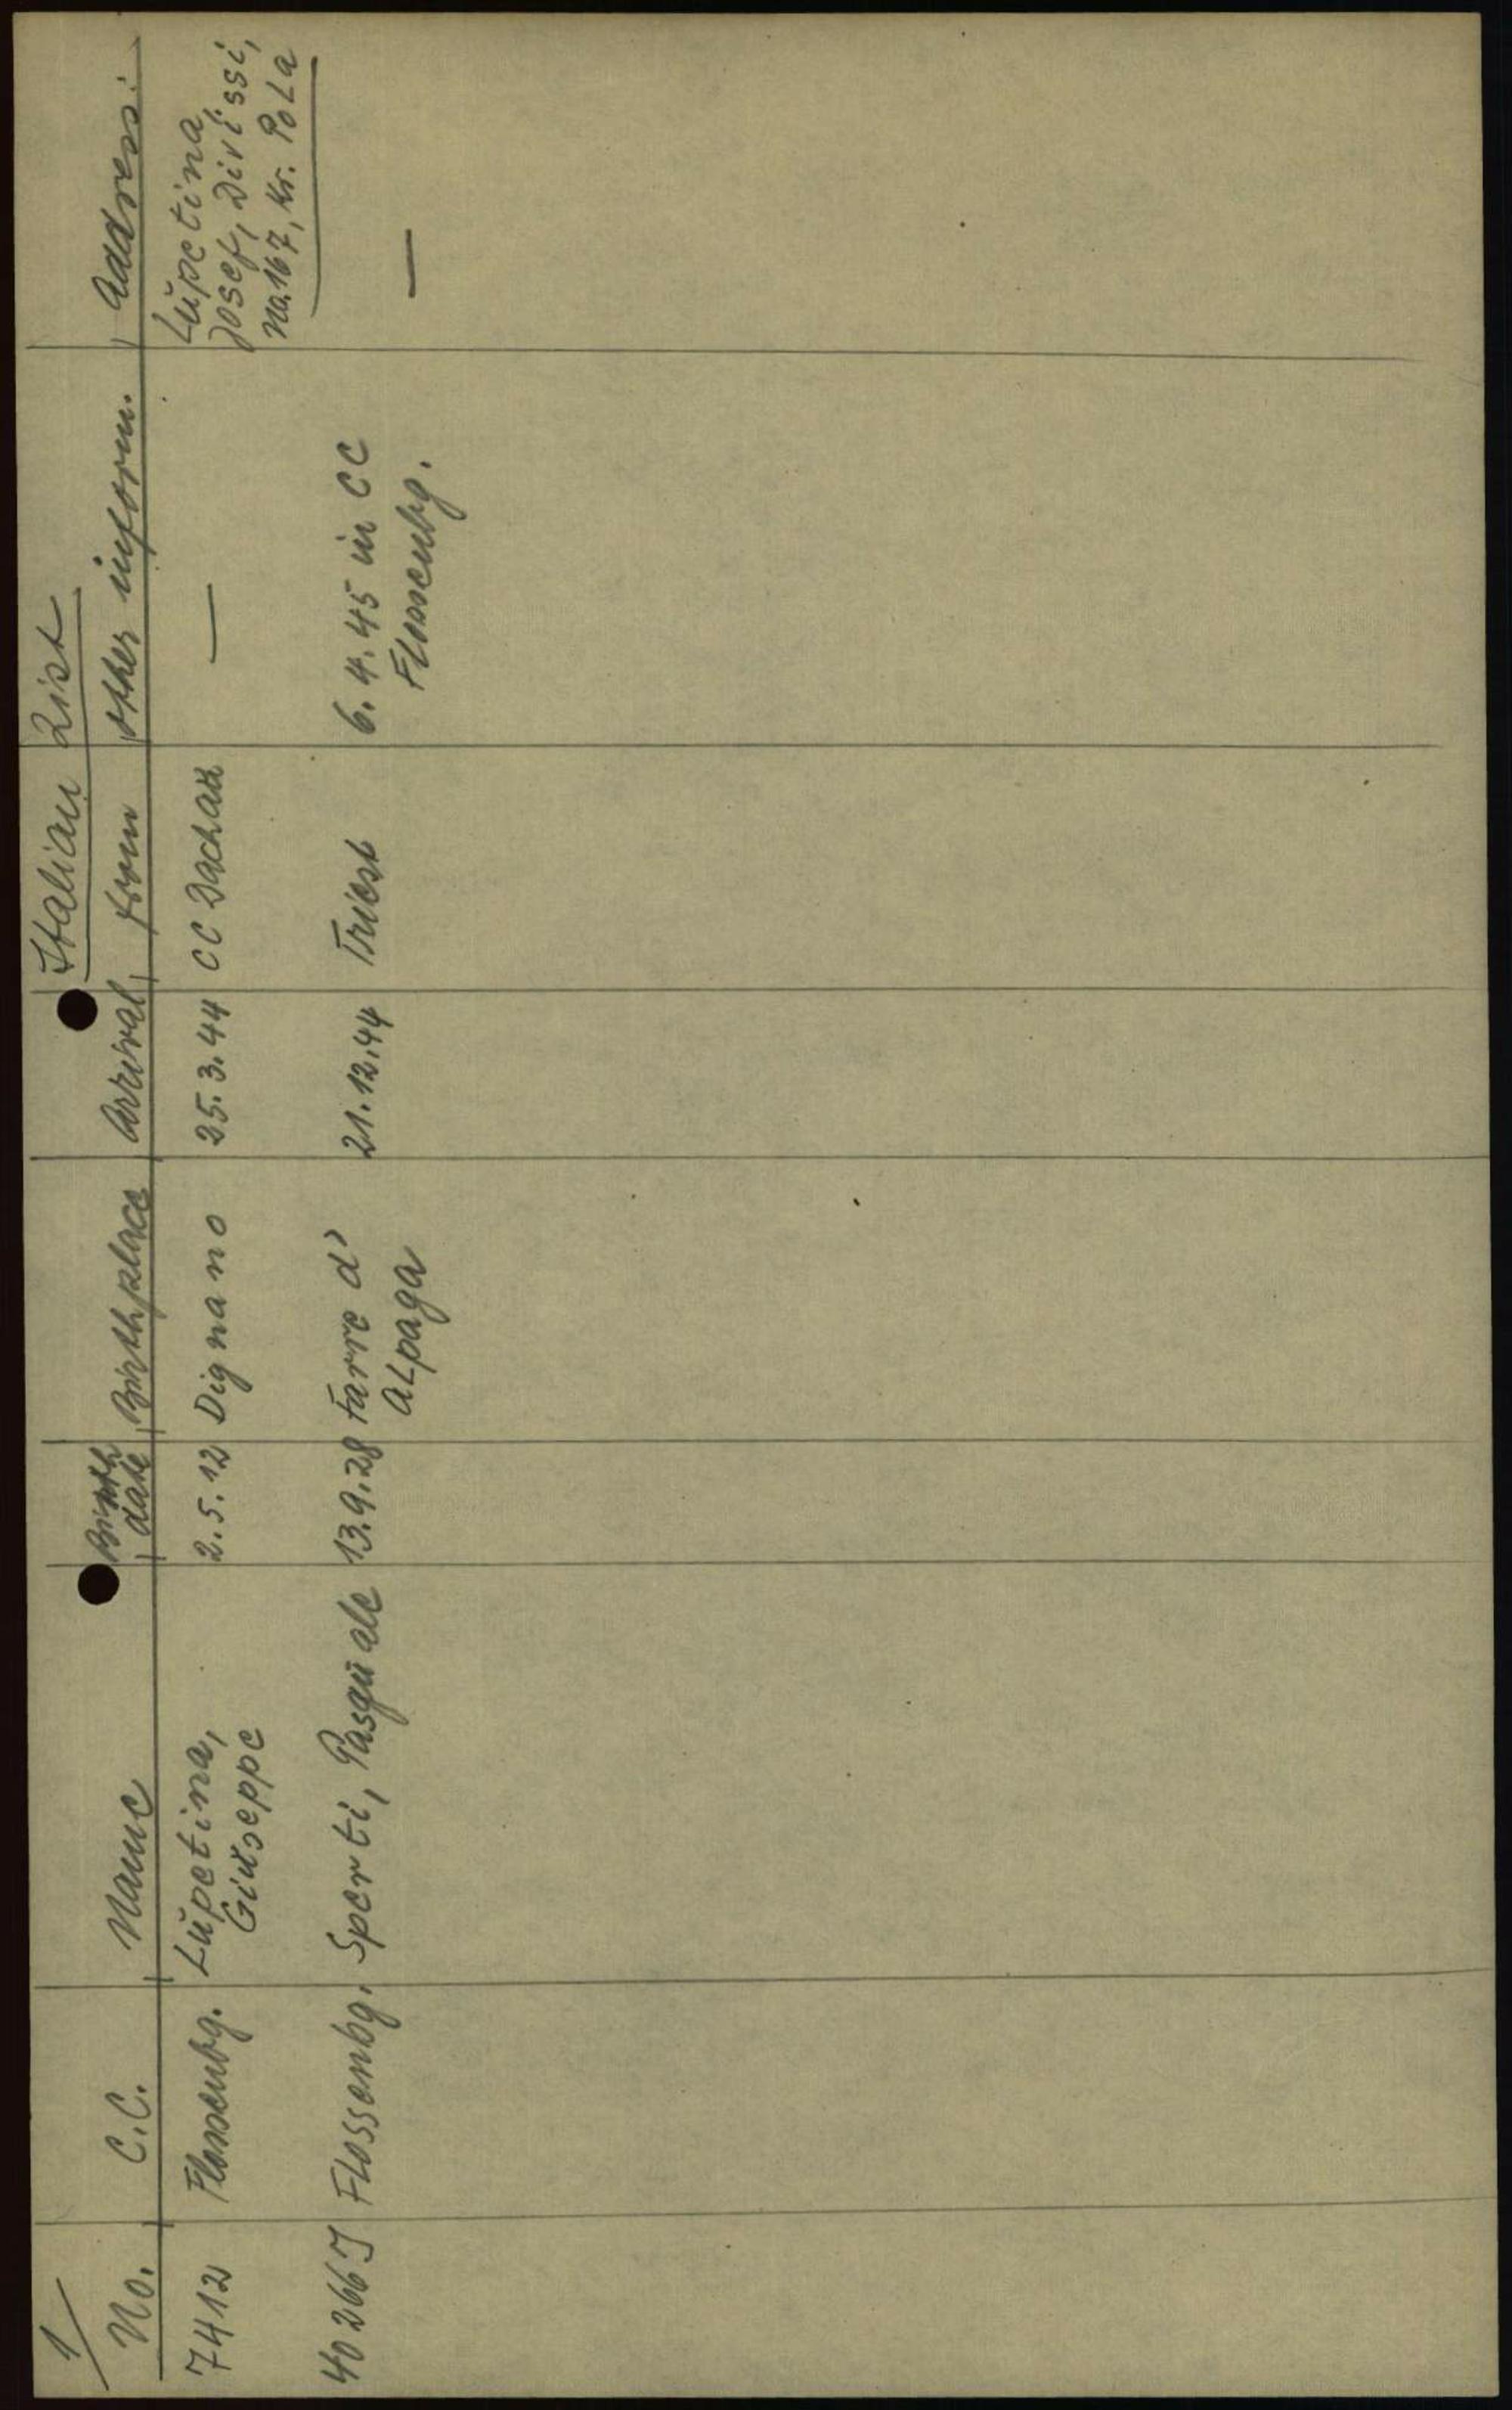 1/
Italian List
No. C.C. Name Birth date Birthplace Arrival from other inform. Address:
7412 Flossenbg. Lŭpetina, Giŭseppe 2.5.12 Dignano 25.3.44 CC Dachaŭ — Lŭpetina, Josef, Divissi, na.167, Kr. Pola
40266J Flossenbg. Sperti, Pasqŭale 13.9.28 Farre d' Alpaga 21.12.44 Triest 6.4.45 in CC Flossenbg. —